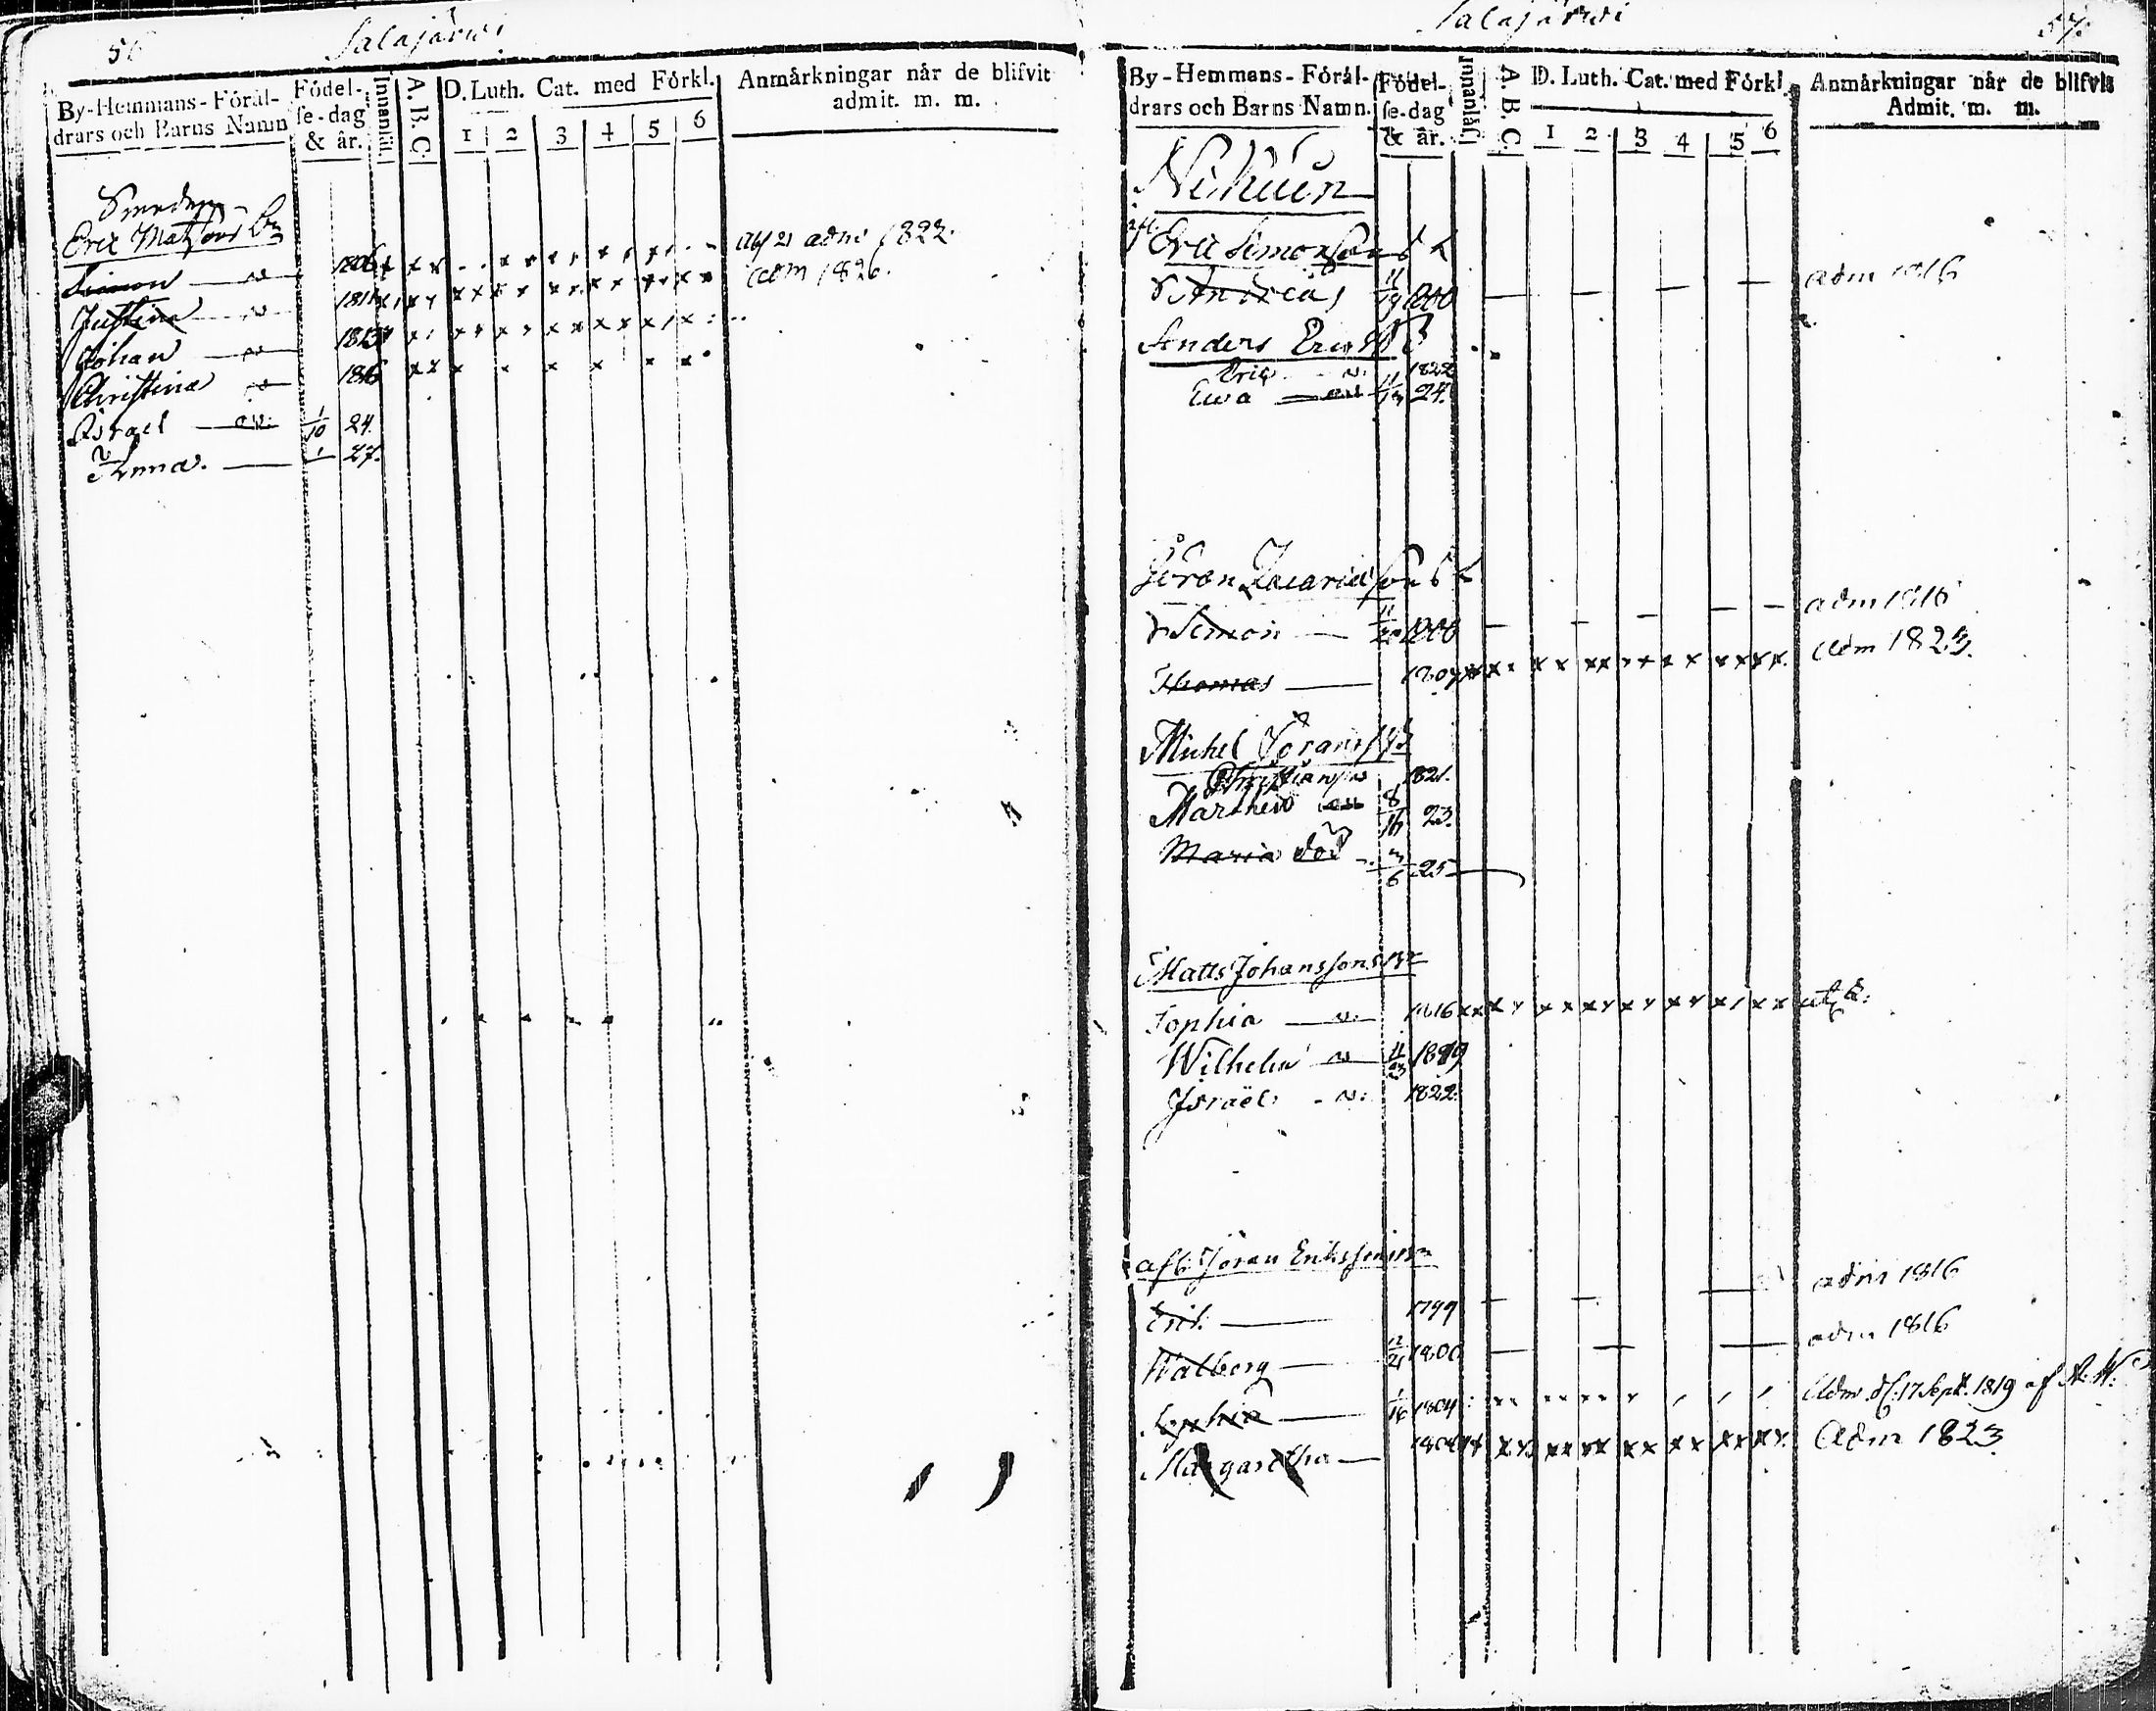 56
Salajärwi
By-Hemmans-Föräl-
drars och Barns Namn
Födel-
se-dag
& år.
Innanläs.
A. B. C.
D. Luth. Cat. med Förkl.
1 2 3 4 5 6
Anmärkningar när de blifvit
admit. m. m.
Smeden
Eric Matssons Bn
Simon 1806 adm 1822.
Justina 1811 adm 1826.
Johan 1813
Christina 1816
Israel 1/10 24.
Anna. 27.
Salajärwi
57.
By-Hemmans-Föräl-
drars och Barns Namn.
Födel-
se-dag
& år.
Innanläs.
A. B. C.
D. Luth. Cat. med Förkl.
1 2 3 4 5 6
Anmärkningar när de blifvit
Admit. m. m.
Eric Simonssons
Andreas 11/19 1800 adm 1816
Anders Ericss B
Eric 1822
Ewa 24.
Göran Zacariæsons
Simon 1800 adm 1816
Thomas 1807 adm 1823.
Michel Göranss B
Christian 1821.
Marthew 8/16 23.
Maria död 25
Matts Johanssons Bn
Sophia 1816
Wilhelm 11/23 1819
Israël 1822.
afl. Jöran Erikssons
Eric. 1799 adm 1816
Walberg 12/21 1800 adm 1816
Sophia 1/16 1804 Adm. d. 17 Sept. 1819 af
Margaretha Adm 1823